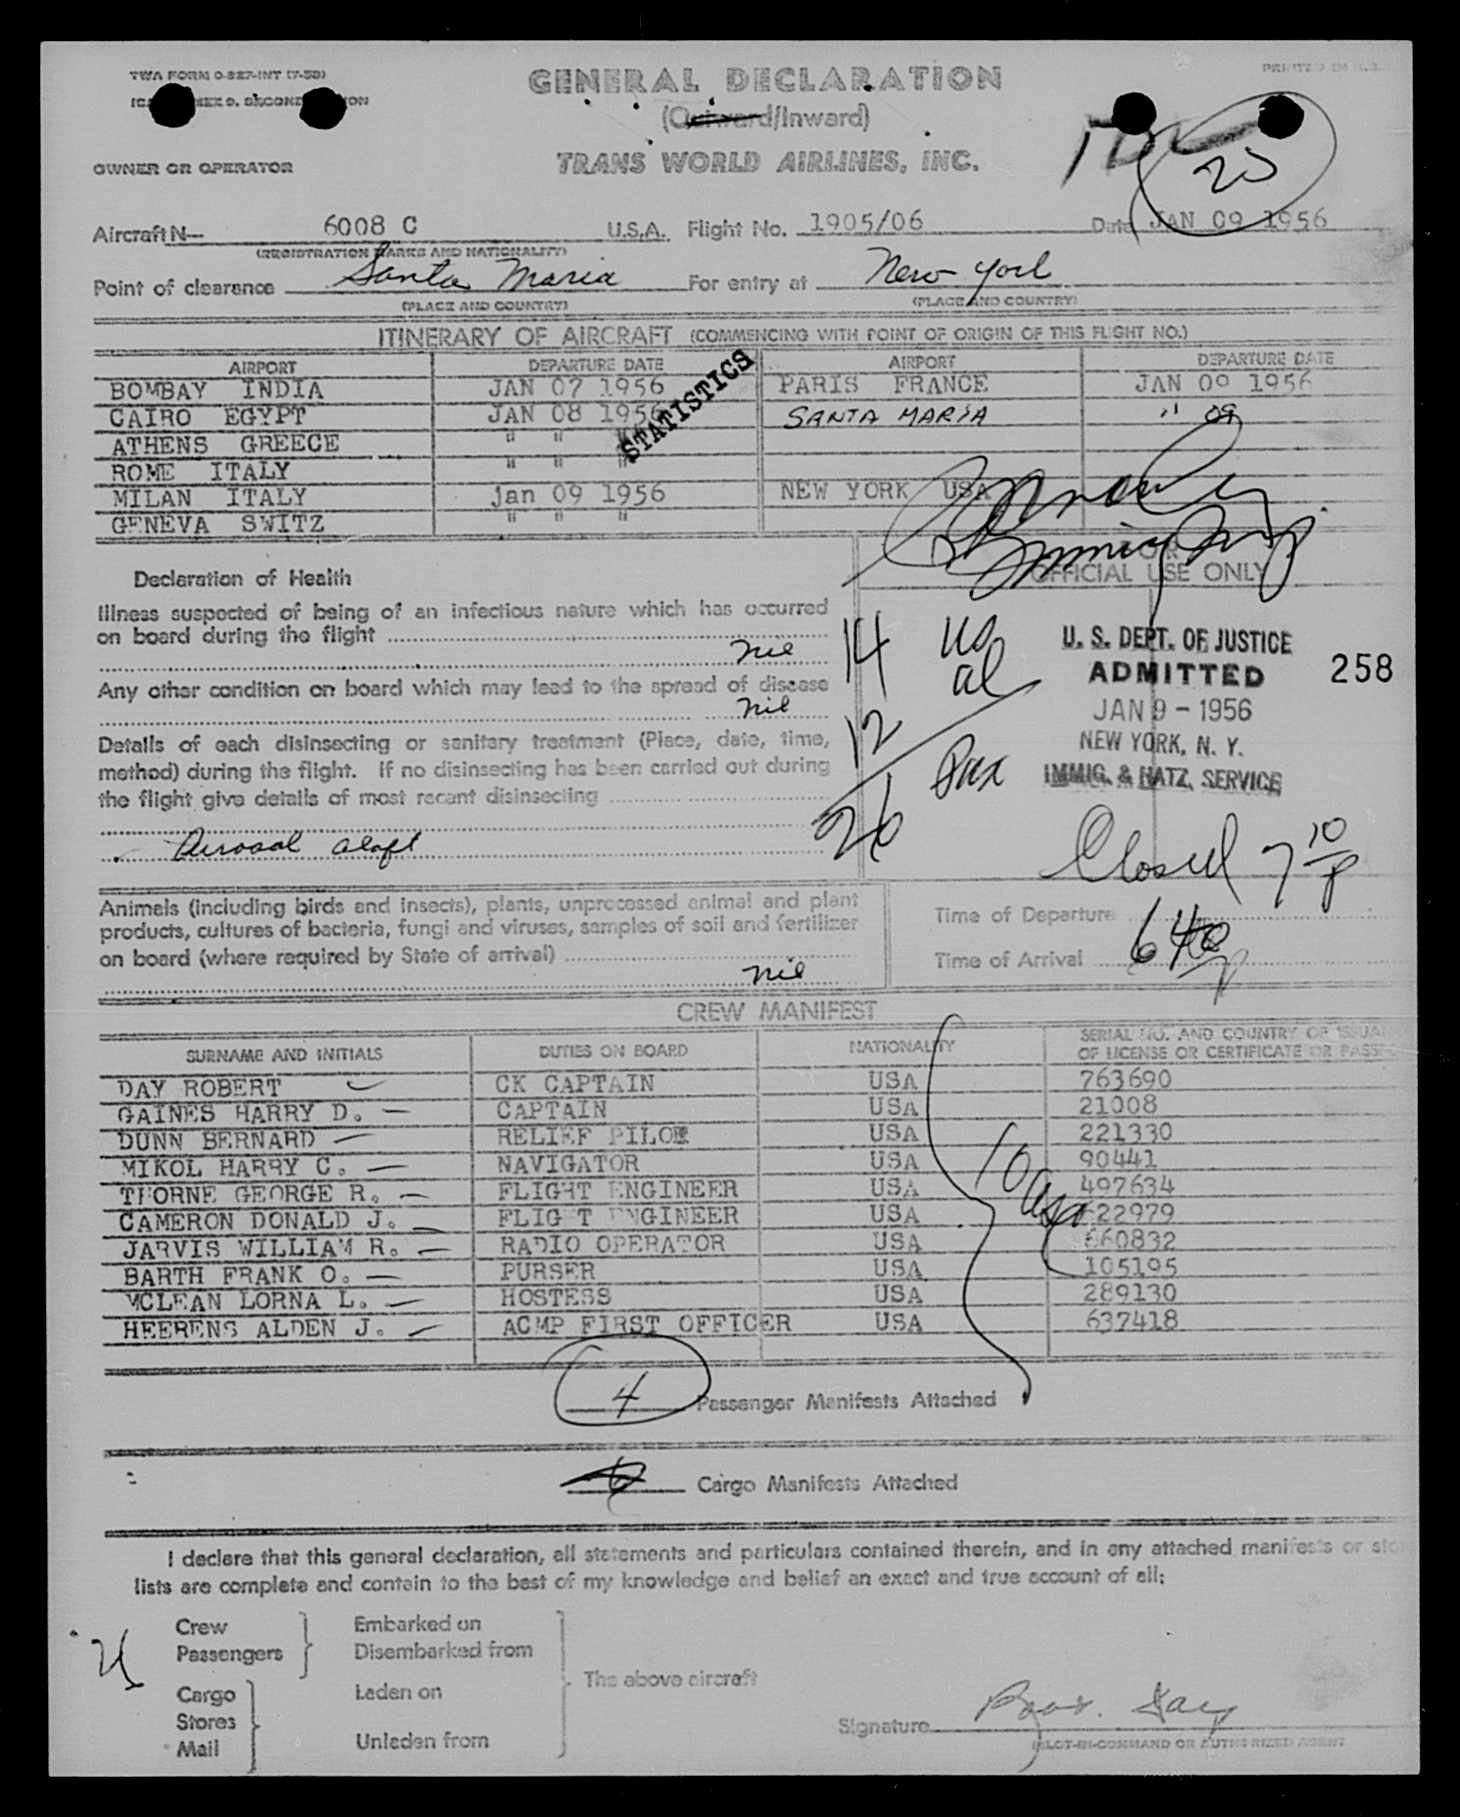 TWA FORM 0-827-INT (7-53)
PRINTED IN U.S.
GENERAL DECLARATION
(Outward/Inward)
TRANS WORLD AIRLINES, INC.
OWNER OR OPERATOR
25
Aircraft N— 6008 C U.S.A. Flight No. 1905/06 Date JAN 09 1956
(REGISTRATION MARKS AND NATIONALITY)
Point of clearance Santa Maria For entry at New York
(PLACE AND COUNTRY) (PLACE AND COUNTRY)
ITINERARY OF AIRCRAFT (COMMENCING WITH POINT OF ORIGIN OF THIS FLIGHT NO.)
AIRPORT DEPARTURE DATE AIRPORT DEPARTURE DATE
BOMBAY INDIA JAN 07 1956 PARIS FRANCE JAN 09 1956
CAIRO EGYPT JAN 08 1956 SANTA MARIA " 09
STATISTICS
ATHENS GREECE " " "
ROME ITALY " " "
MILAN ITALY Jan 09 1956 NEW YORK USA
GENEVA SWITZ " " "
FOR
OFFICIAL USE ONLY
Declaration of Health
Illness suspected of being of an infectious nature which has occurred
on board during the flight
nil
Any other condition on board which may lead to the spread of disease
nil
Details of each disinsecting or sanitary treatment (Place, date, time,
method) during the flight. If no disinsecting has been carried out during
the flight give details of most recent disinsecting
Aerosol aloft
14 US
12 al
26 Pax
U. S. DEPT. OF JUSTICE
ADMITTED 258
JAN 9 - 1956
NEW YORK, N. Y.
IMMIG. & NATZ. SERVICE
Closed 7 10/P
Animals (including birds and insects), plants, unprocessed animal and plant
products, cultures of bacteria, fungi and viruses, samples of soil and fertilizer
on board (where required by State of arrival)
nil
Time of Departure
Time of Arrival 640p
CREW MANIFEST
SURNAME AND INITIALS DUTIES ON BOARD NATIONALITY SERIAL NO. AND COUNTRY OF ISSUA
OF LICENSE OR CERTIFICATE OR PASSP
DAY ROBERT CK CAPTAIN USA 763690
GAINES HARRY D. CAPTAIN USA 21008
DUNN BERNARD RELIEF PILOT USA 221330
MIKOL HARRY C. NAVIGATOR USA 90441
THORNE GEORGE R. FLIGHT ENGINEER USA 497634
CAMERON DONALD J. FLIGHT ENGINEER USA 22979
JARVIS WILLIAM R. RADIO OPERATOR USA 660832
BARTH FRANK O. PURSER USA 105195
MCLEAN LORNA L. HOSTESS USA 289130
HEERENS ALDEN J. ACMP FIRST OFFICER USA 637418
10 usa
4 Passenger Manifests Attached
Cargo Manifests Attached
I declare that this general declaration, all statements and particulars contained therein, and in any attached manifests or sto
lists are complete and contain to the best of my knowledge and belief an exact and true account of all:
Crew Embarked on
Passengers Disembarked from
The above aircraft
Cargo Laden on
Stores
Mail Unladen from
Signature
PILOT-IN-COMMAND OR AUTHORIZED AGENT